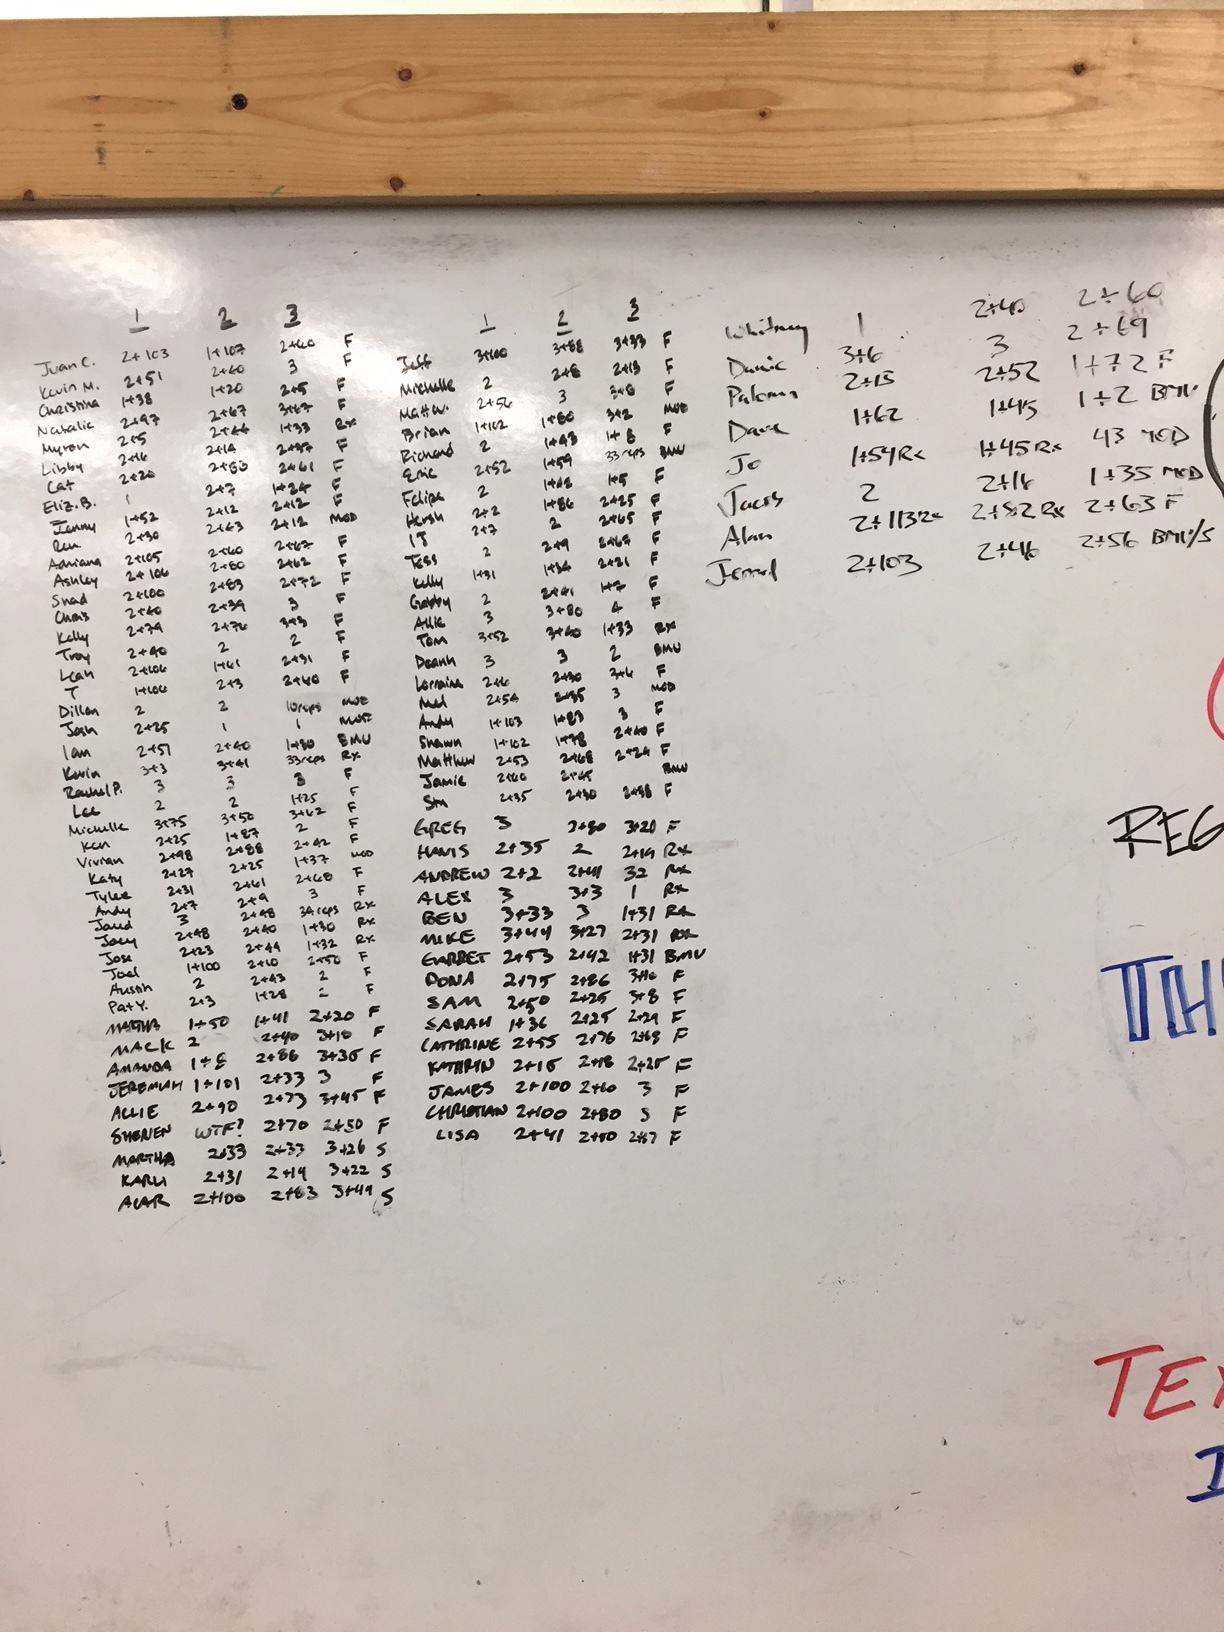 1 2 3
Juan C. 2+103 1+107 2+60 F
Kevin M. 2+51 2+60 3 F
Christina 1+38 1+20 2+5 F
Natalie 2+97 2+67 3+67 F
Myron 2+5 2+44 1+33 Rx
Libby 2+16 2+14 2+37 F
Cat 2+20 2+80 2+61 F
Eliz. B. 1 2+7 1+24 F
Jenny 1+52 2+12 2+12
Ren 2+30 2+63 2+12 MOD
Adriana 2+105 2+60 2+67 F
Ashley 2+106 2+80 2+62 F
Shad 2+100 2+83 2+72 F
Chris 2+40 2+39 3 F
Kelly 2+79 2+76 3+3 F
Troy 2+90 2 2 F
Leah 2+106 1+61 2+31 F
T 1+106 2+3 2+60 F
Dillon 2 2 10reps MOD
Josh 2+25 1 1 MOD
Ian 2+51 2+40 1+30 BMU
Kevin 3+3 3+41 33reps Rx
Rachel P. 3 3 3 F
Lee 2 2 1+25 F
Michelle 3+75 3+50 3+62 F
Ken 2+25 1+87 2 F
Vivian 2+98 2+88 2+42 F
Katy 2+27 2+25 1+37 MOD
Tyler 2+31 2+61 2+68 F
Andy 2+7 2+9 3 F
Jarud 3 2+48 34reps Rx
Joey 2+48 2+40 1+30 Rx
Jose 2+23 2+44 1+32 Rx
Joel 1+100 2+10 2+50 F
Austin 2 2+43 2 F
Pat Y. 2+3 1+28 2 F
MARTHA 1+50 1+41 2+20 F
MACK 2 2+40 3+10 F
AMANDA 2+86 3+35 F
JEREMIAH 1+101 2+33 3 F
ALLIE 2+90 2+73 3+45 F
WTF? 2+70 2+50 F
MARTHA 2+33 2+33 3+26 S
KARLI 2+31 2+19 3+22 S
2+100 2+83 3+49 S
1 2 3
Jeff 3+100 3+88 3+33 F
Michelle 2 2+8 2+13 F
Matt W. 2+56 3 3+8 F
Brian 1+102 1+80 3+2 MOD
Richard 2 1+43 1+8 F
Eric 2+52 1+59 33reps BMU
Felipe 2 1+42 1+5 F
Harsh 2+2 1+86 2+25 F
2+7 2 2+65 F
Tess 2 2+9 2+67 F
Kelly 1+31 1+34 2+21 F
Gabby 2 2+41 1+7 F
Allie 3 3+80 4 F
Tom 3+52 3+40 1+33 Rx
3 3 2 BMU
Lorraine 2+6 2+30 3+6 F
2+54 2+35 3 MOD
Andy 1+103 1+83 3 F
Shawn 1+102 1+78 2+40 F
Matthew 2+53 2+68 2+24 F
Jamie 2+60 2+45 BMU
2+35 2+30 2+38 F
GREG 3 2+80 3+20 F
2+35 2 2+19 Rx
ANDREW 2+2 2+41 32 Rx
ALEX 3 3+3 1 Rx
BEN 3+33 3 1+31 Rx
MIKE 3+44 3+27 2+31 Rx
GARRET 2+53 2+42 1+31 BMU
DONA 2+75 2+86 3+10 F
SAM 2+50 2+25 3+8 F
SARAH 1+36 2+25 2+29 F
CATHRINE 2+55 2+76 2+69 F
KATHRYN 2+15 2+18 2+25 F
JAMES 2+100 2+60 3 F
CHRISTIAN 2+100 2+80 3 F
LISA 2+41 2+50 2+57 F
Whitney 1 2+40 2+60
3+6 3 2+69
Paloma 2+15 2+52 1+72 F
Dave 1+62 1+45 1+2 BMU
Jo 1+54Rx 1+45Rx 43 MOD
2 2+16 1+35 MOD
Alan 2+113Rx 2+52Rx 2+63 F
2+103 2+46 2+56 BMU/S
REG
TH
TEX